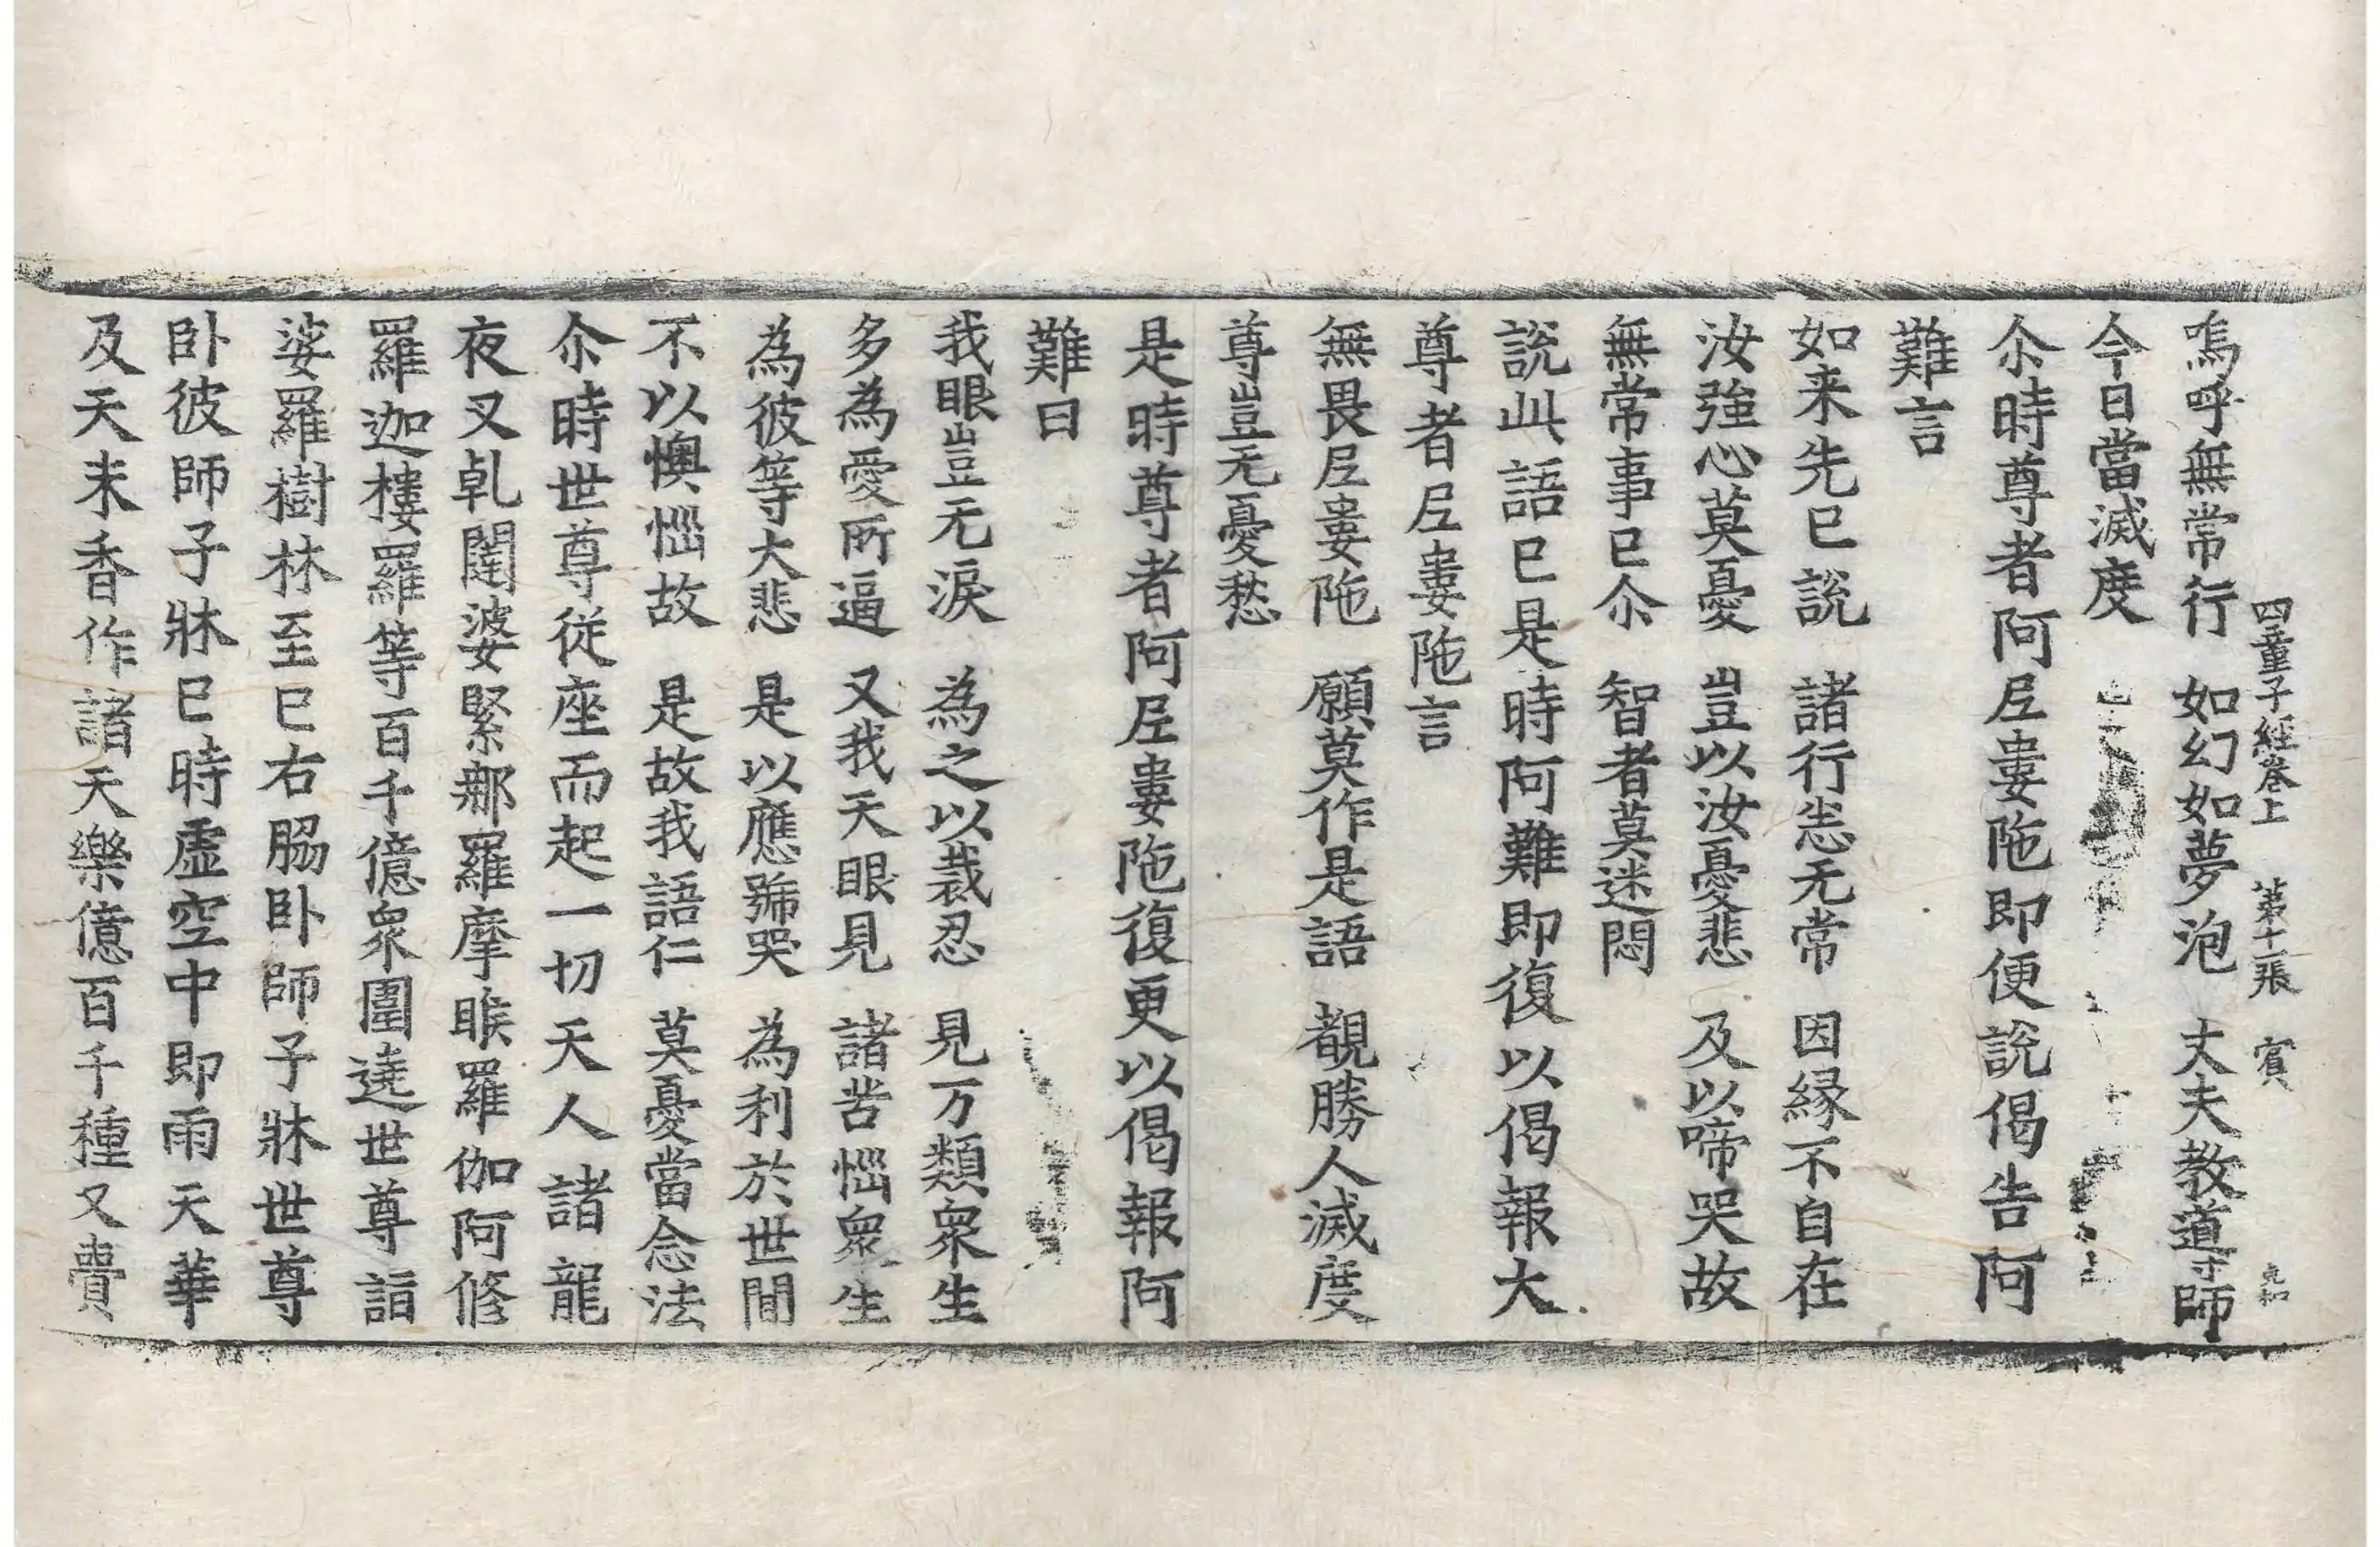 四童子經卷上　第十一張　賓
嗚呼無常行　如幻如夢泡　丈夫教導師
今日當滅度
尒時尊者阿𡰱婁陁即便說偈告阿
難言
如来先已說　諸行恙无常　因緣不自在
汝強心莫憂　豈以汝憂悲　及以啼哭故
無常事已尒　智者莫迷悶
說此語已是時阿難即復以偈報大
尊者𡰱婁陁言
無畏𡰱婁陁　願莫作是語　覩勝人滅度
尊豈无憂愁
是時尊者阿𡰱婁陁復更以偈報阿
難曰
我眼豈无淚　為之以裁忍　見万類衆生
多為愛所逼　又我天眼見　諸苦惱衆生
為彼等大悲　是以應號哭　為利於世間
不以懊惱故　是故我語仁　莫憂當念法
尒時世尊從座而起一切天人諸龍
夜叉乹闥婆緊那羅摩睺羅伽阿修
羅迦樓羅等百千億衆圍遶世尊詣
娑羅樹林至已右脇卧師子牀世尊
卧彼師子牀已時虛空中即雨天華
及天末香作諸天樂億百千種又賷